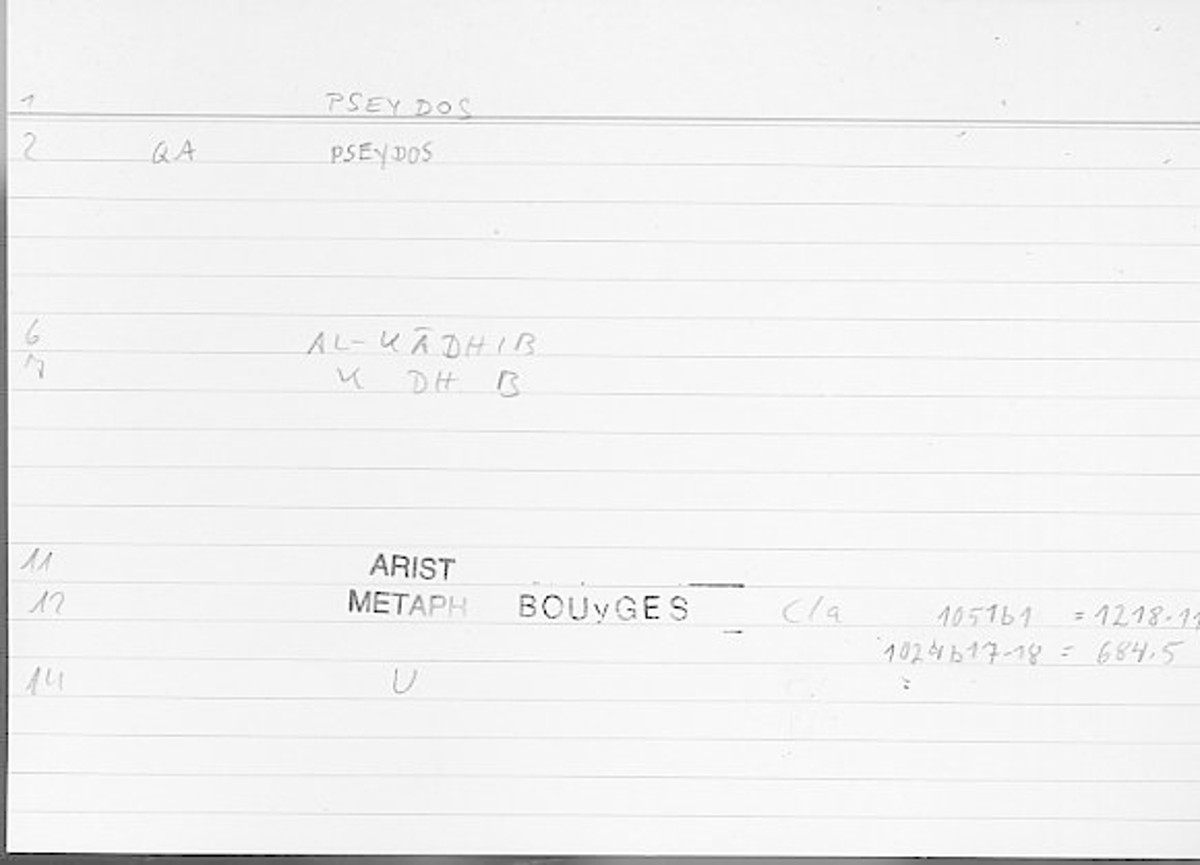 1 PSEYDOS
2 QA PSEYDOS
6 AL-KĀDHIB
7 K DH B
11 ARIST
12 METAPH BOUyGES C/a 1051b1 = 1218.11
1024b17-18 = 684.5
14 U :